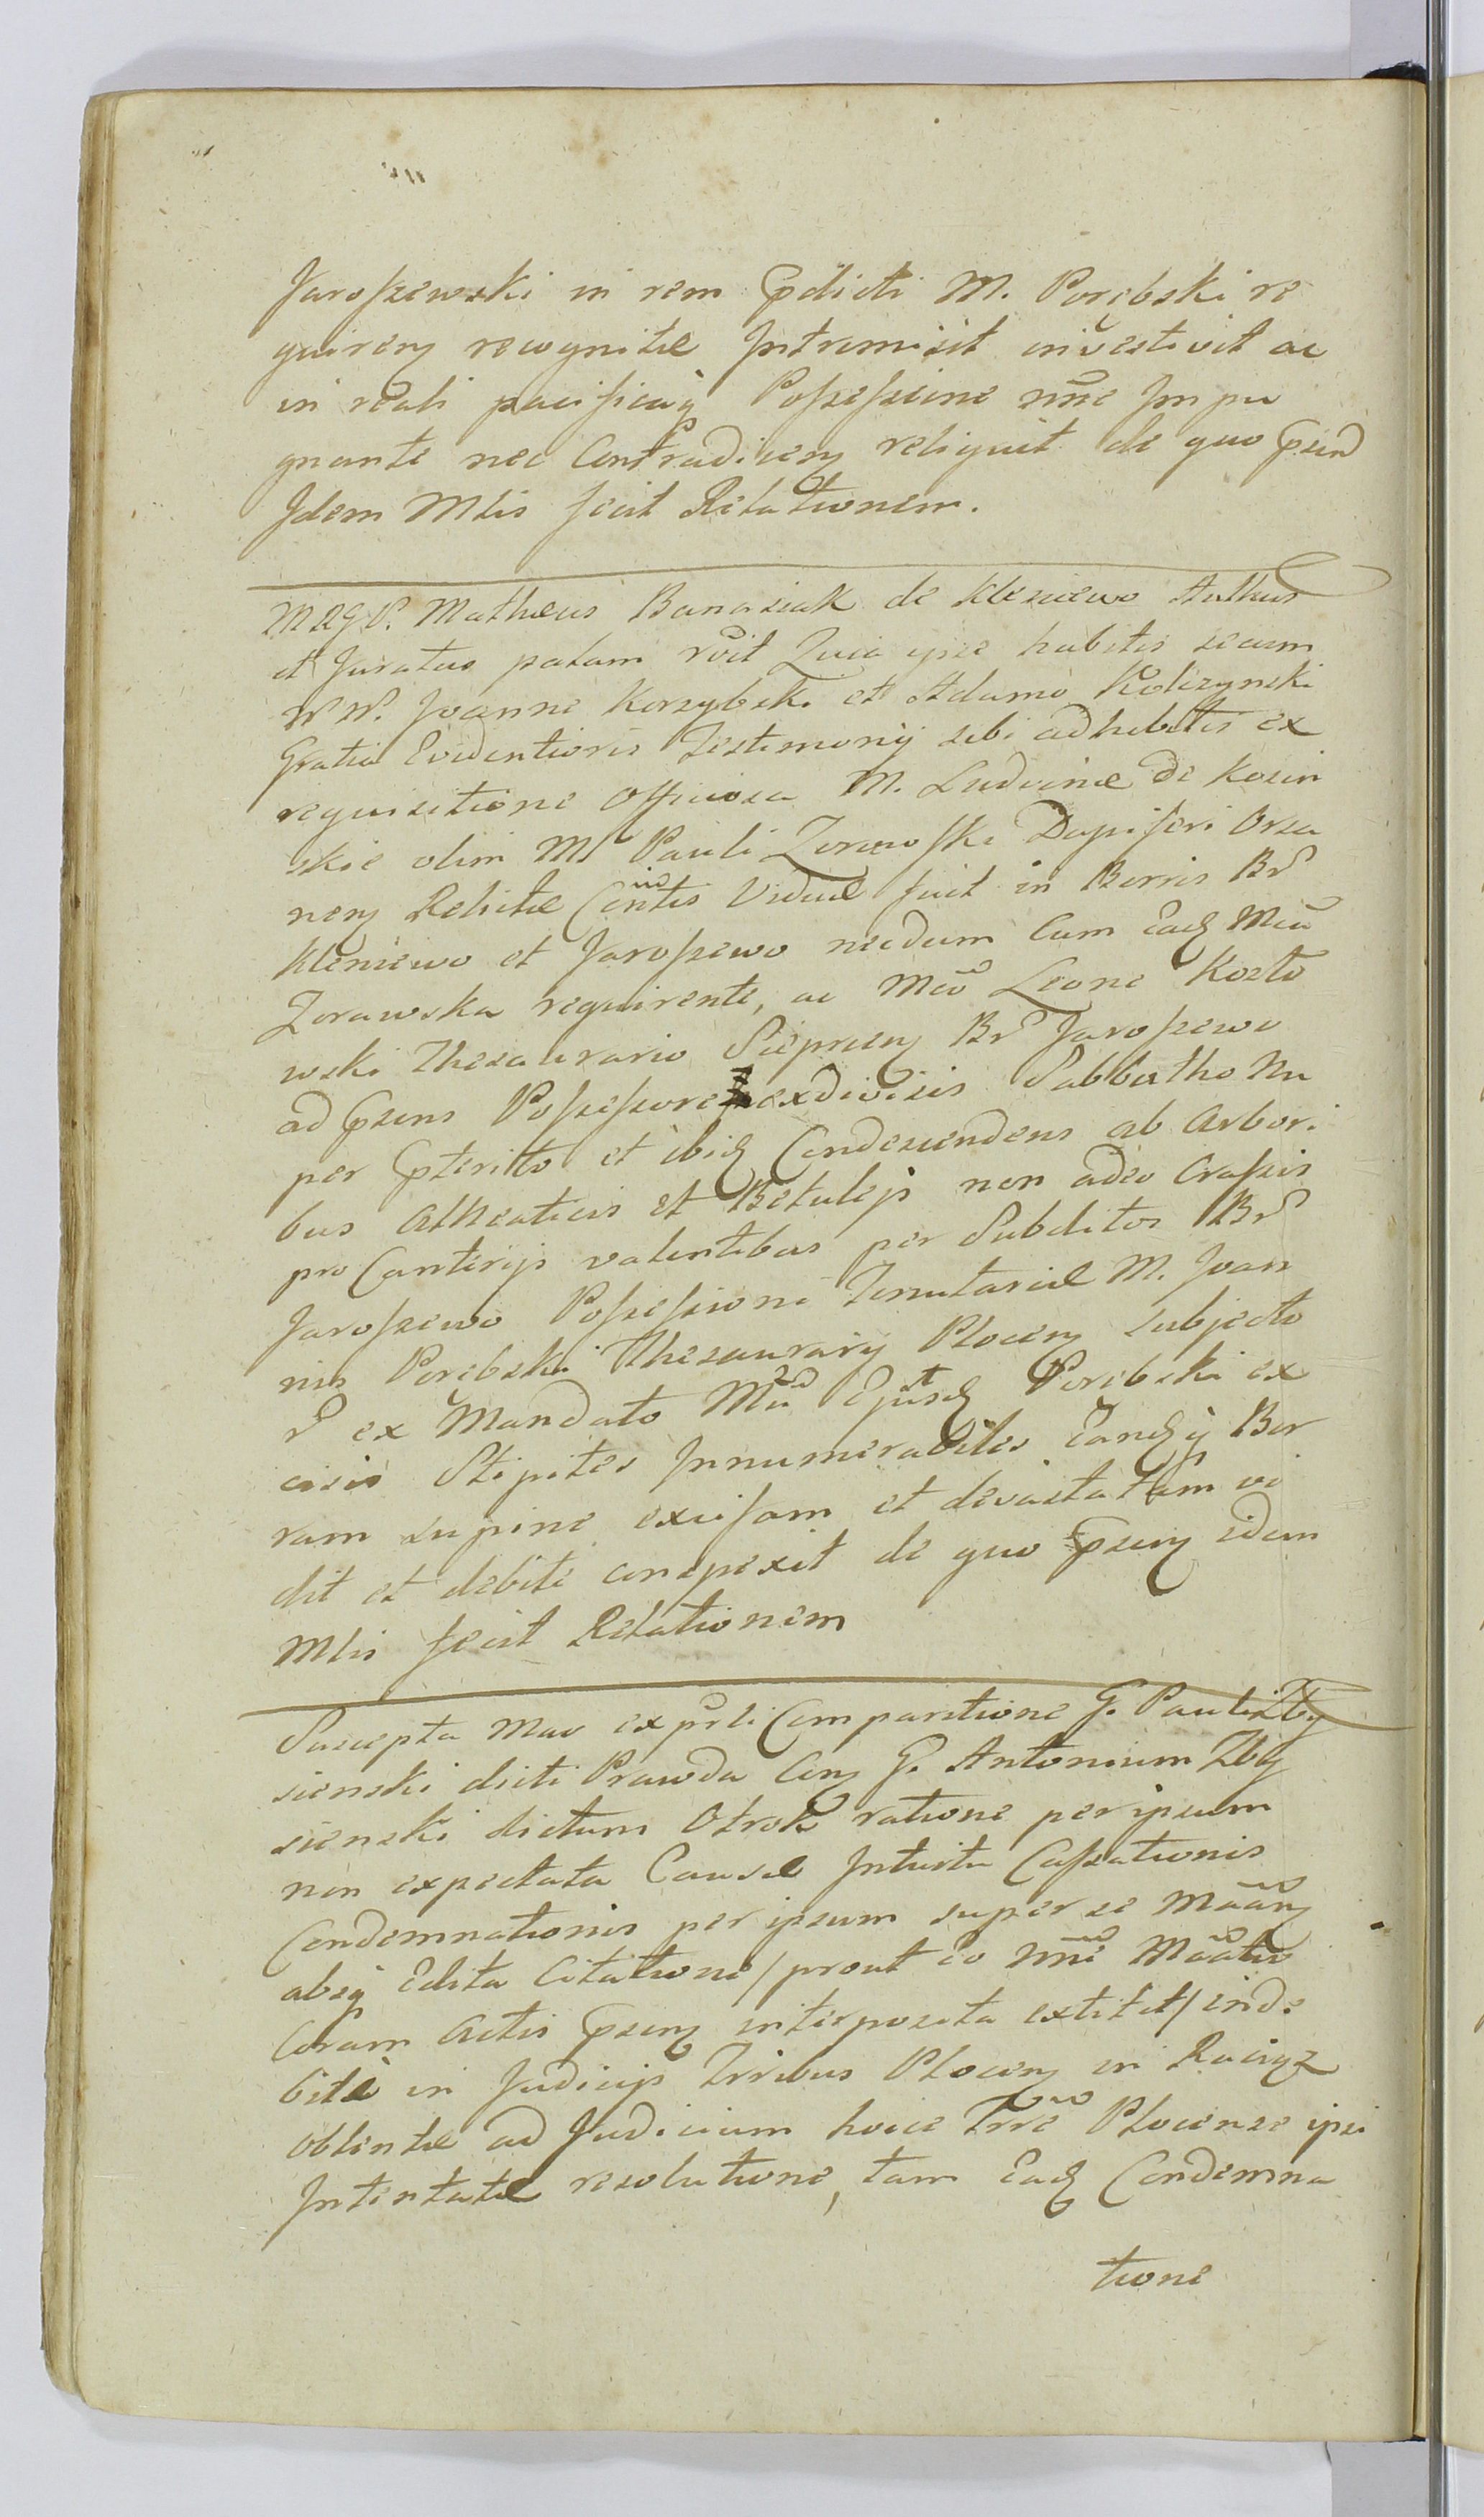 Jaroszewski in rem Pdicti M. Porębski re
quiren recognitæ Intromisit investivit ac
in reali pacificaq Possessione nme Impu
gnante nec Contradicen reliquit de quo Psens
Idem Mlis fecit Relationem.
MRGP. Matheus Banasiak de Kleniewo
et Juratus palam rvit Quia ipse habitis secum
NN. Joanne Korzybski et Adamo Kolczynski
Gratia Evidentioris Testimonij sibi adhibitis ex
requisitione Officiosa M. Ludvinæ de Kosin
skie olim M Pauli Zorawski Dapiferi Orsa
nen Relictæ Contis Viduæ fuit in Borris Br
Kleniewo et Jaroszewo necdum Cum Eadq Mca
Zorawska requirente, ac Mco Leone Kozło
wski Thesaurario Sieprcen Br Jaroszewo
ad Psens Possessore exdivisis Sabbatho Nu
per Pterito et ibiq Condescendens ab Arbori
bus et Betuleis non adeo Crassis
pro Canterijs valentibus per Subditos Br
Jaroszewo Possessioni Tenutariæ M. Joan
nis Porębski Thesaurarij Plocen subjecto
r ex Mandato Mci Ejusdq Porębski ex
cisis Stipites Innumerabiles Eandq q Bor
ram supine excisam et devastatam vi
dit et debite conspexit de quo Psen idem
Mlis fecit Relationem
Suscepta Mao ex prli Comparitione G. Pauli Zby
sienski dicti Prawda Con G. Antonium Zby
sienski dictum Otrok ratione per ipsum
non expectata Causæ Intuitu Cassationis
Condemnationis per ipsum super se Maan
absq Edita Citatione / prout eo nme Maatio
Coram Actis Psen interposita extitit / inde
bitè in Judicijs Trribus Plocen in Raciąz
obtentæ ad Judicium hocce Trre Plocense ipsi
Intentatæ resolutione, tam Eadq Condemna
tione